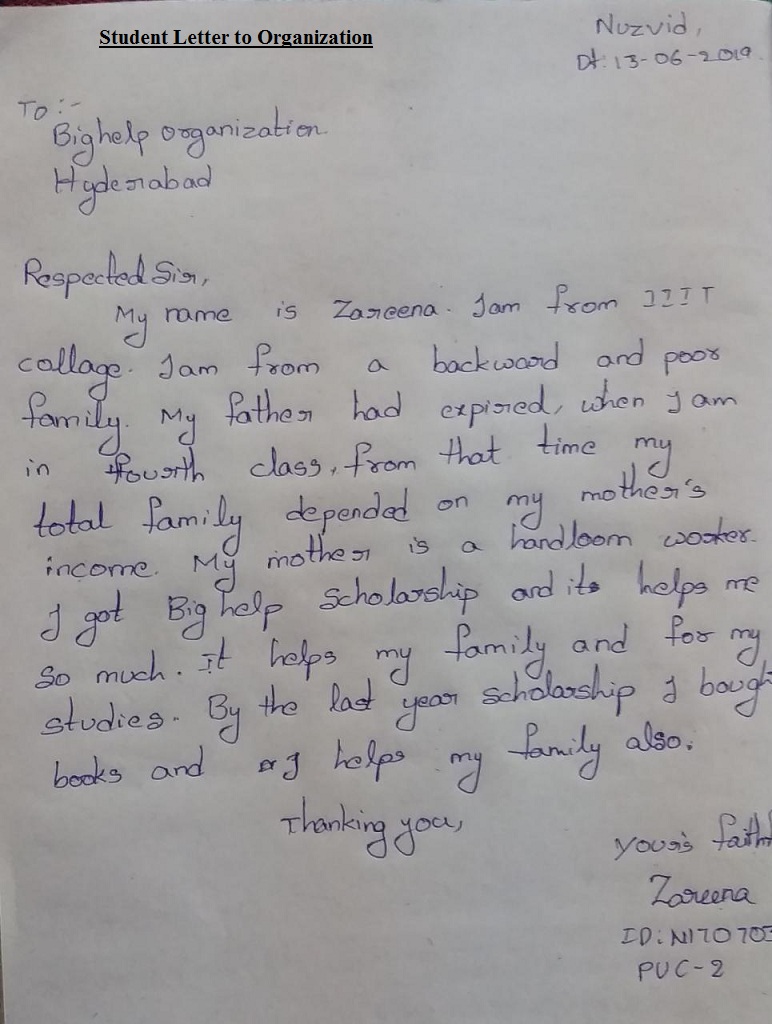 Student Letter to Organization
Nuzvid,
Dt: 13-06-2019.
TO :-
Bighelp organization
Hyderabad
Respected Sir,
My name is Zareena. I am from IIIT
collage. I am from a backward and poor
family. My father had expired, when I am
in fourth class, from that time my
total family depended on my mother's
income. My mother is a handloom worker.
I got Big help Scholarship and its helps me
so much. It helps my family and for my
studies. By the last year scholarship I bough
books and I helps my family also.
Thanking you,
your's faith
Zareena
ID: N17070
PUC-2